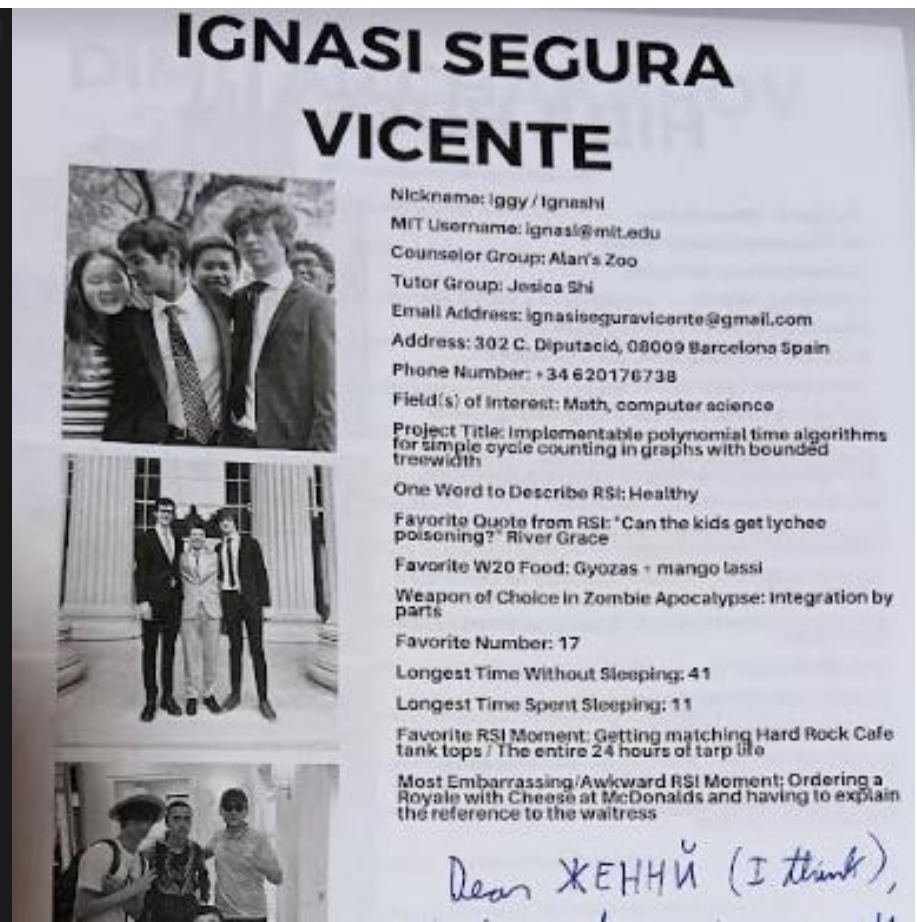 IGNASI SEGURA
VICENTE
Nickname: Iggy / Ignashi
MIT Username: ignasi@mit.edu
Counselor Group: Alan's Zoo
Tutor Group: Jesica Shi
Email Address: ignasiseguravicente@gmail.com
Address: 302 C. Diputació, 08009 Barcelona Spain
Phone Number: +34 620176738
Field(s) of Interest: Math, computer science
Project Title: Implementable polynomial time algorithms
for simple cycle counting in graphs with bounded
treewidth
One Word to Describe RSI: Healthy
Favorite Quote from RSI: "Can the kids get lychee
poisoning?" River Grace
Favorite W20 Food: Gyozas + mango lassi
Weapon of Choice in Zombie Apocalypse: Integration by
parts
Favorite Number: 17
Longest Time Without Sleeping: 41
Longest Time Spent Sleeping: 11
Favorite RSI Moment: Getting matching Hard Rock Cafe
tank tops / The entire 24 hours of tarp life
Most Embarrassing/Awkward RSI Moment: Ordering a
Royale with Cheese at McDonalds and having to explain
the reference to the waitress
Dear ЖЕННЙ (I think),